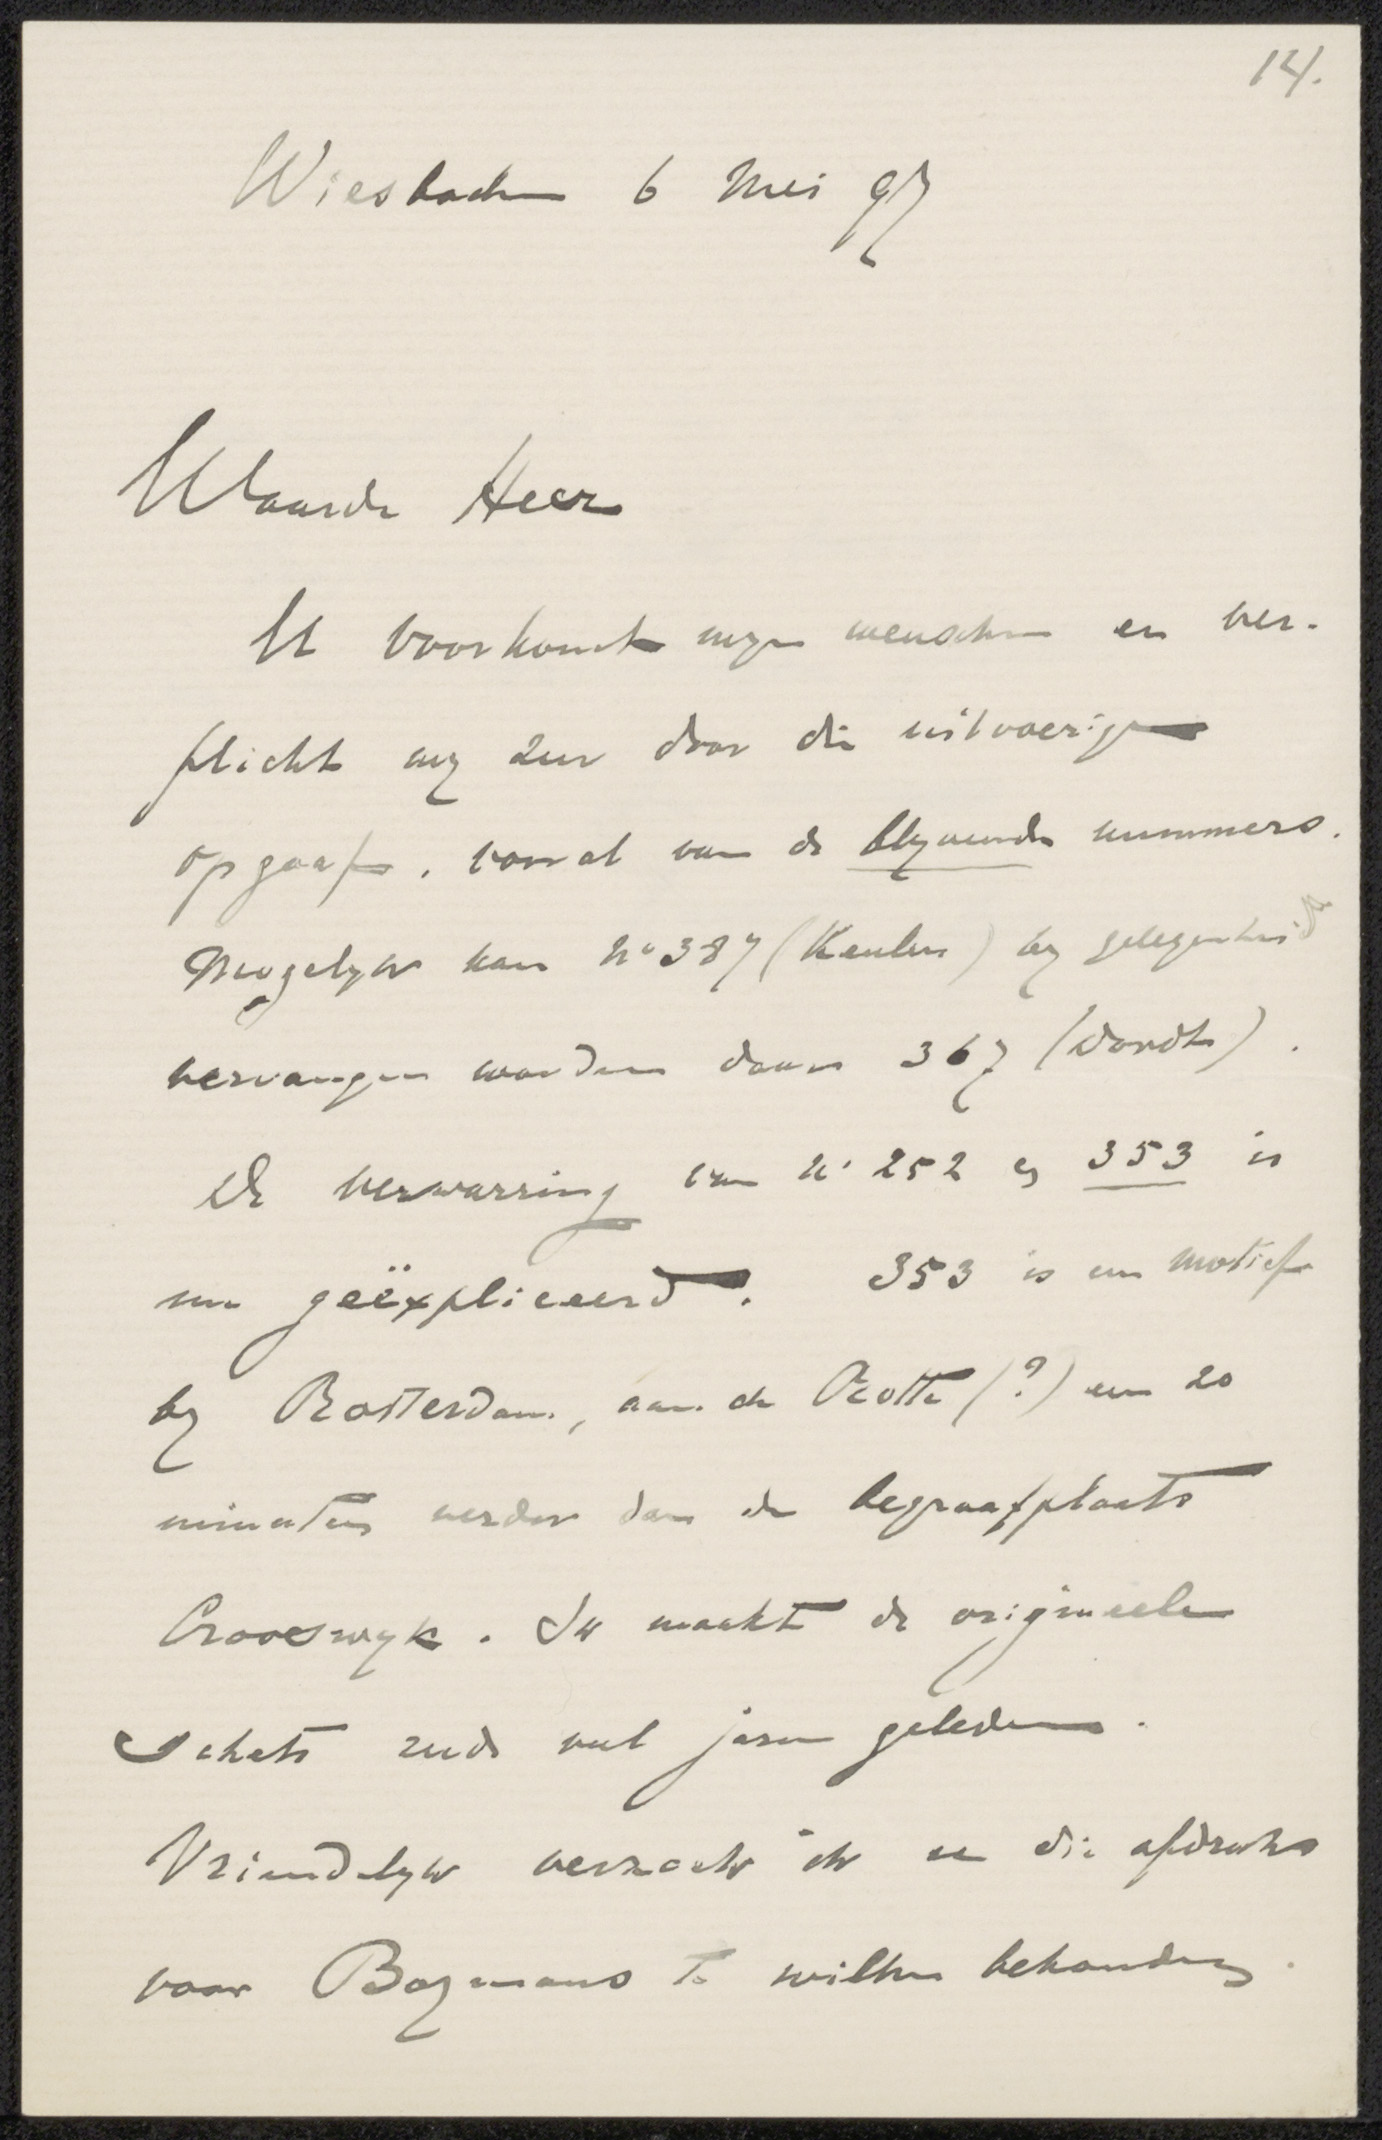 14.
Wiesbaden 6 Mei 97
Waarde Heer
U voorkomt myn wenschen en ver-
plicht my zeer door die uitvoerige
opgaaf, vooral van de blyvende nummers.
Mogelyk kan No 387 (Keulen) by gelegenheid
vervangen worden door 367 (Dordt).
De verwarring van No 252 en 353 is
nu geëxpliceerd. 353 is een motief
by Rotterdam, aan de Rotte (?) een 20
minuten verder dan de begraafplaats
Crooswyk. Ik maakt de origineele
schets reeds veel jaren geleden.
Vriendelyk verzoek ik u die afdruks
voor Boymans te willen behouden.